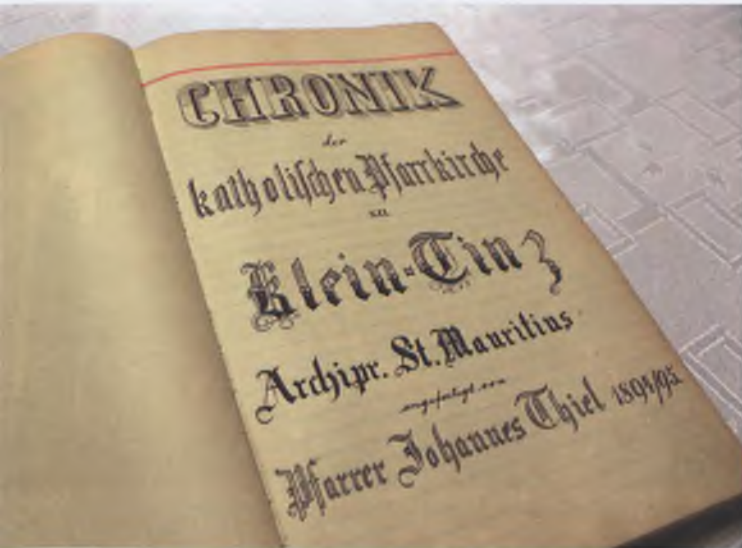 CHRONIK
der
katholischen Pfarrkirche
zu
Klein-Tinz
Archipr. St. Mauritius
angefertigt von
Pfarrer Johannes Thiel 1894/95.